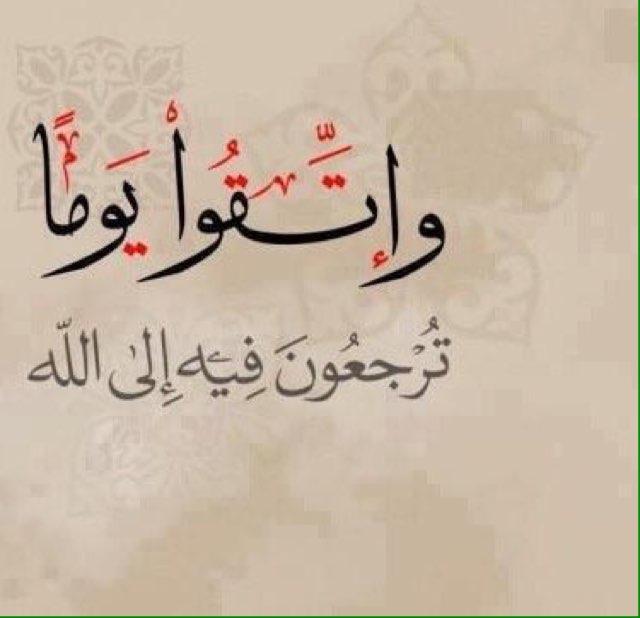 وإتَّقُوأْ يَوماً
تُرْجعُونَ فِيه إِلىٰ اللّه